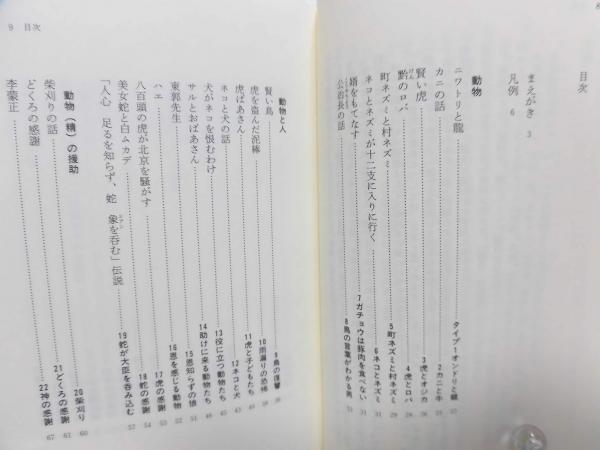 目次
まえがき 3
凡例 6
動物
ニワトリと龍 タイプ1オンドリと龍
カニの話 2カニと牛
賢い虎 3虎とオジカ
黔のロバ 4虎とロバ
町ネズミと村ネズミ 5町ネズミと村ネズミ
ネコとネズミが十二支に入りに行く 6ネコとネズミ
婿をもてなす 7ガチョウは豚肉を食べない
公冶長の話 8鳥の言葉がわかる男
9 目次
動物と人
賢い鳥 9鳥の復讐
虎を盗んだ泥棒 10雨漏りの恐怖
虎ばあさん 11虎と子どもたち
ネコと犬の話 12ネコと犬
犬がネコを恨むわけ 13役に立つ動物たち
サルとおばあさん 14助けに来る動物たち
東郭先生 15恩知らずの狼
ハエ 16恩を感じる動物
八百頭の虎が北京を騒がす 17虎の感謝
美女蛇と白ムカデ 18蛇の感謝
「人心 足るを知らず、蛇 象を呑む」伝説 19蛇が大臣を呑み込む
動物（精）の援助
柴刈りの話 20柴刈り 60
どくろの感謝 21どくろの感謝 61
李蒙正 22神の感謝 67